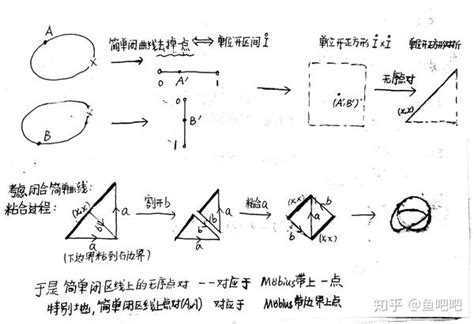 A
简单闭曲线去掉一点 ⟺ 单位开区间 İ
单位开正方形 İ×İ
单位开正方形对折
x
0 A' 1
无序点对
(A',B')
(x,x)
B
0
B'
1
考虑闭合简单曲线:
粘合过程:
(x,x)
b
a
a
(下边界粘到右边界)
割开b
b
b
a
a
粘合a
(x,x)
b
a
b
(x,x)
于是 简单闭区线上的无序点对 一一对应于 Möbius带上一点
特别地, 简单闭区线上点对(A,A) 对应于 Möbius带边界上点
知乎 @鱼吧吧